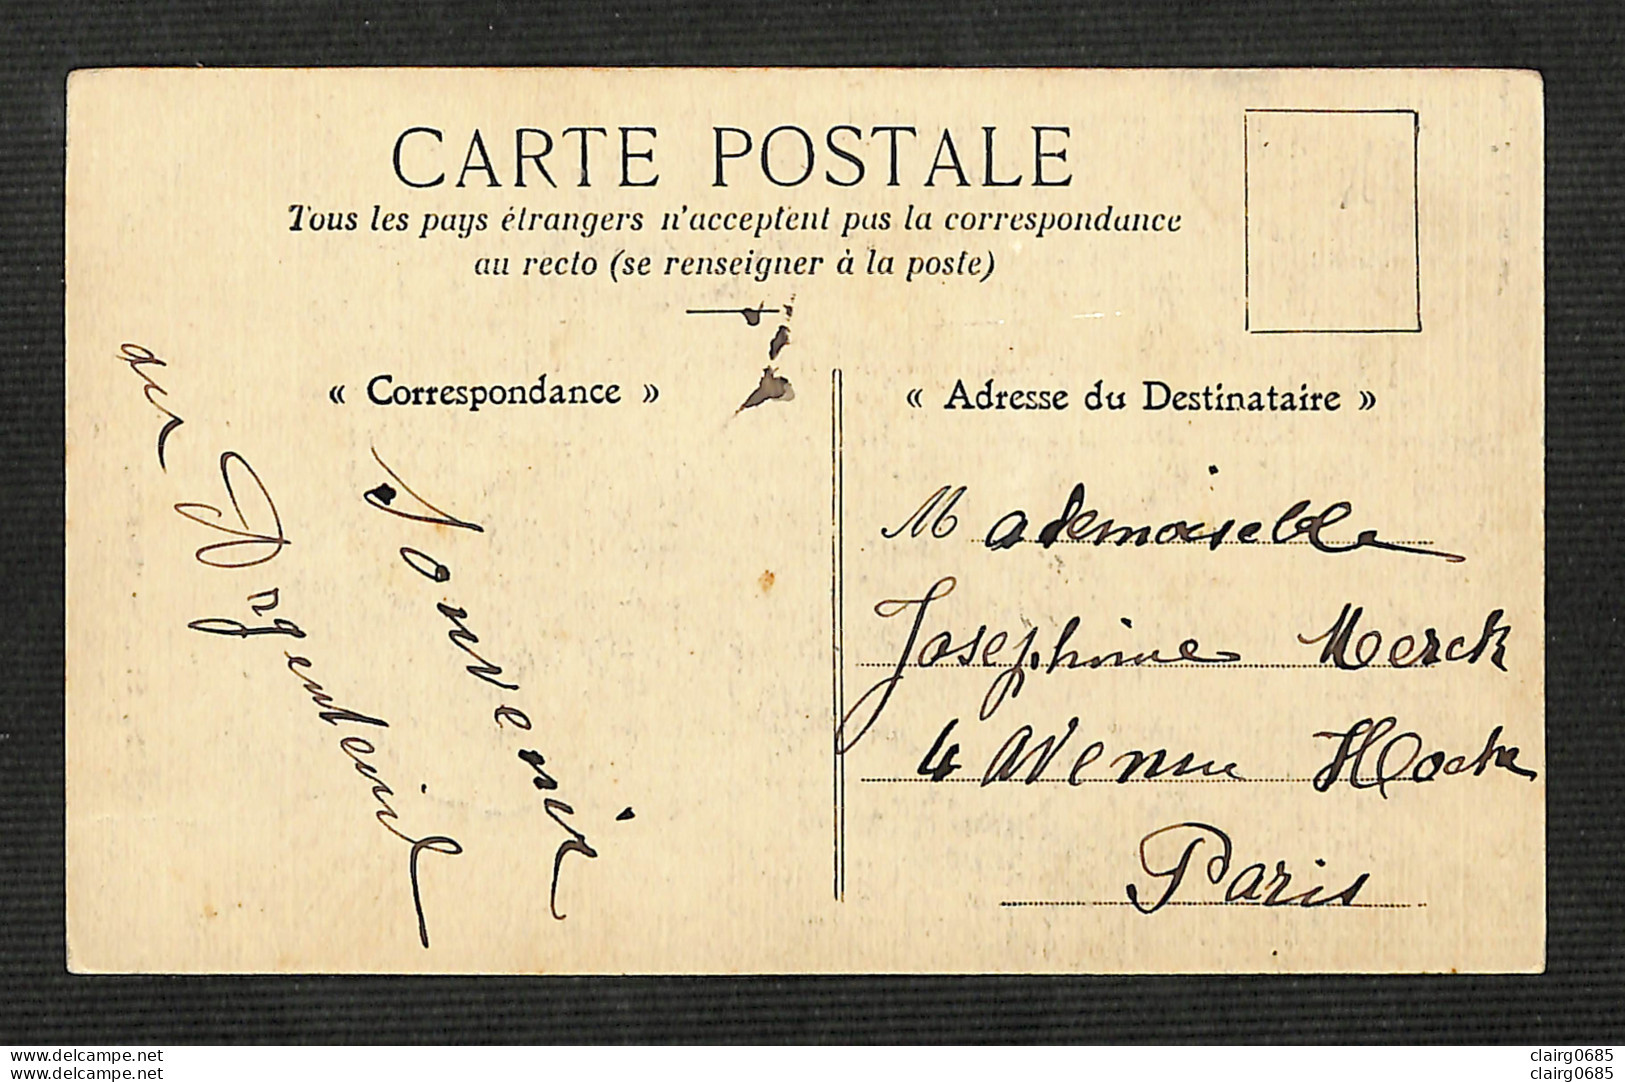 CARTE POSTALE
Tous les pays étrangers n'acceptent pas la correspondance
au recto (se renseigner à la poste)
« Correspondance »
Souvenir
Argenteuil
« Adresse du Destinataire »
Mademoiselle
Joséphine Merck
4 Avenue Hoche
Paris
www.delcampe.net
www.delcampe.net
clairg0685
clairg0685